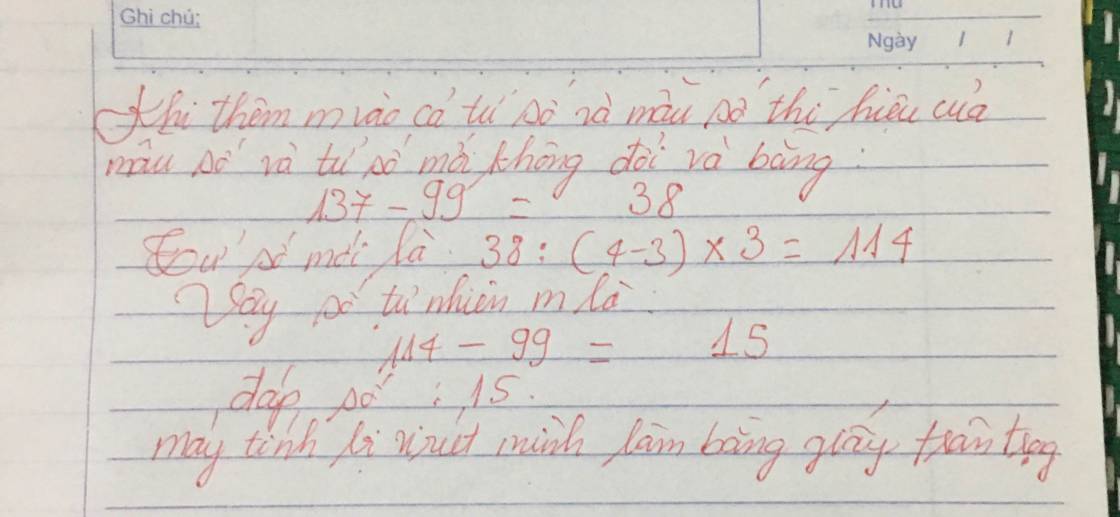 Ghi chú:
Thứ
Ngày / /
Khi thêm m vào cả tử số và mẫu số thì hiệu của
mẫu số và tử số mới không đổi và bằng:
137 - 99 = 38
Tử số mới là: 38 : (4-3) x 3 = 114
Vậy số tự nhiên m là:
114 - 99 = 15
đáp số : 15.
máy tính bị virút mình làm bằng giấy trân trọg